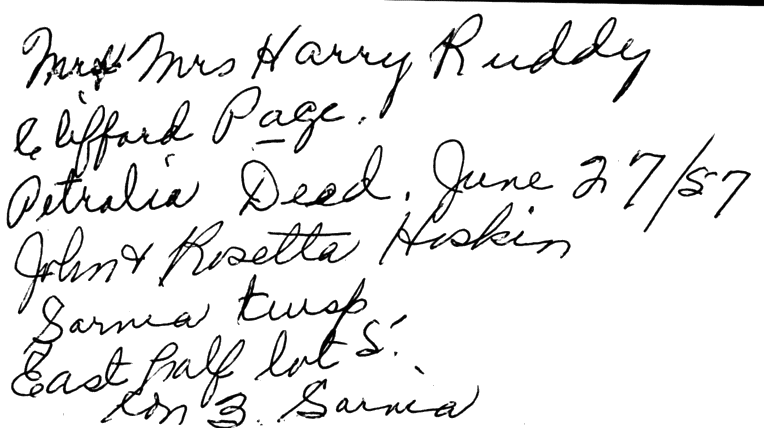 Mr & Mrs Harry Ruddy
Clifford Page.
Petralia Dead. June 27/57
John & Rosetta Hoskin
Sarnia twsp
East half lot 5.
Con 3. Sarnia